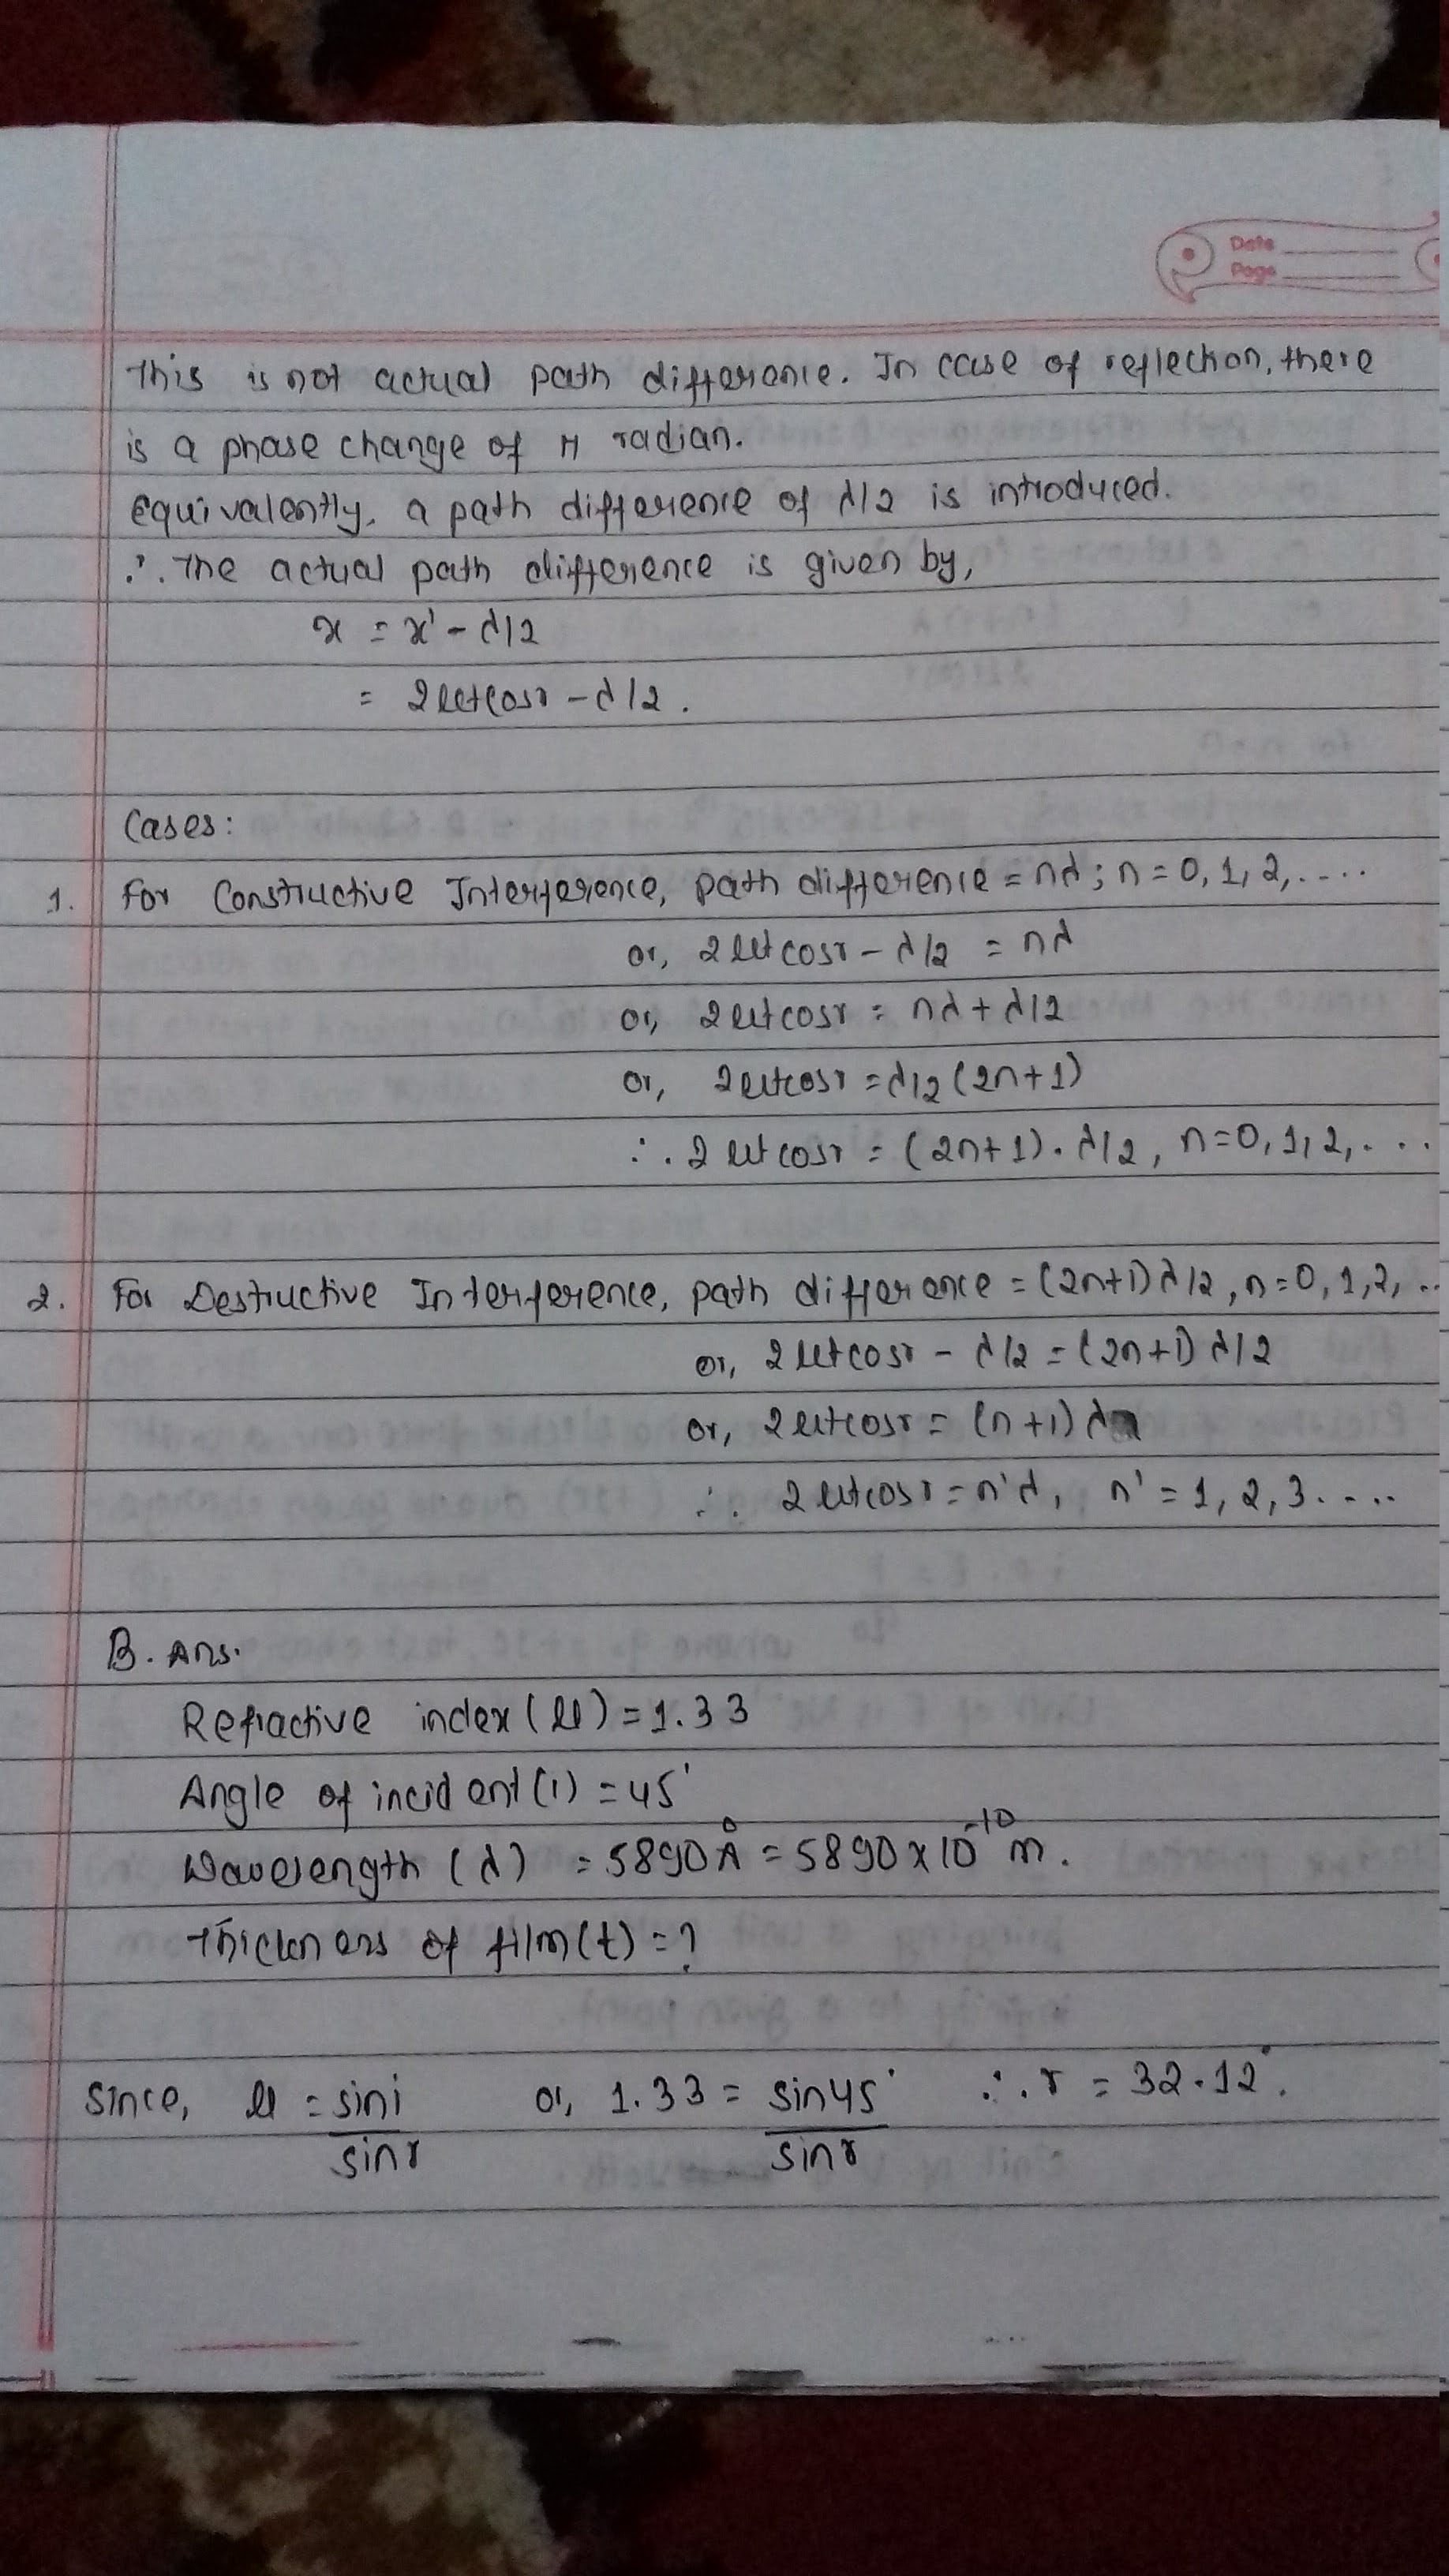 Date
Page
This is not actual path difference. In case of reflection, there
is a phase change of π radian.
Equivalently, a path difference of λ/2 is introduced.
∴ The actual path difference is given by,
x = x' - λ/2
= 2μtcosr - λ/2.
Cases:
1. For Constructive Interference, path difference = nλ; n = 0, 1, 2, ....
or, 2μtcosr - λ/2 = nλ
or, 2μtcosr = nλ + λ/2
or, 2μtcosr = λ/2 (2n+1)
∴ 2μtcosr = (2n+1). λ/2, n=0, 1, 2, . . .
2. For Destructive Interference, path difference = (2n+1) λ/2, n=0, 1, 2, ..
or, 2μtcosr - λ/2 = (2n+1) λ/2
or, 2μtcosr = (n+1) λ
∴ 2μtcosr = n'λ, n' = 1, 2, 3. ...
B. Ans.
Refractive index (μ) = 1.33
Angle of incident (i) = 45°
Wavelength (λ) = 5890Å = 5890 x 10⁻¹⁰ m.
Thickness of film (t) = ?
Since, μ = sini/sinr or, 1.33 = sin45°/sinr ∴ r = 32.12°.